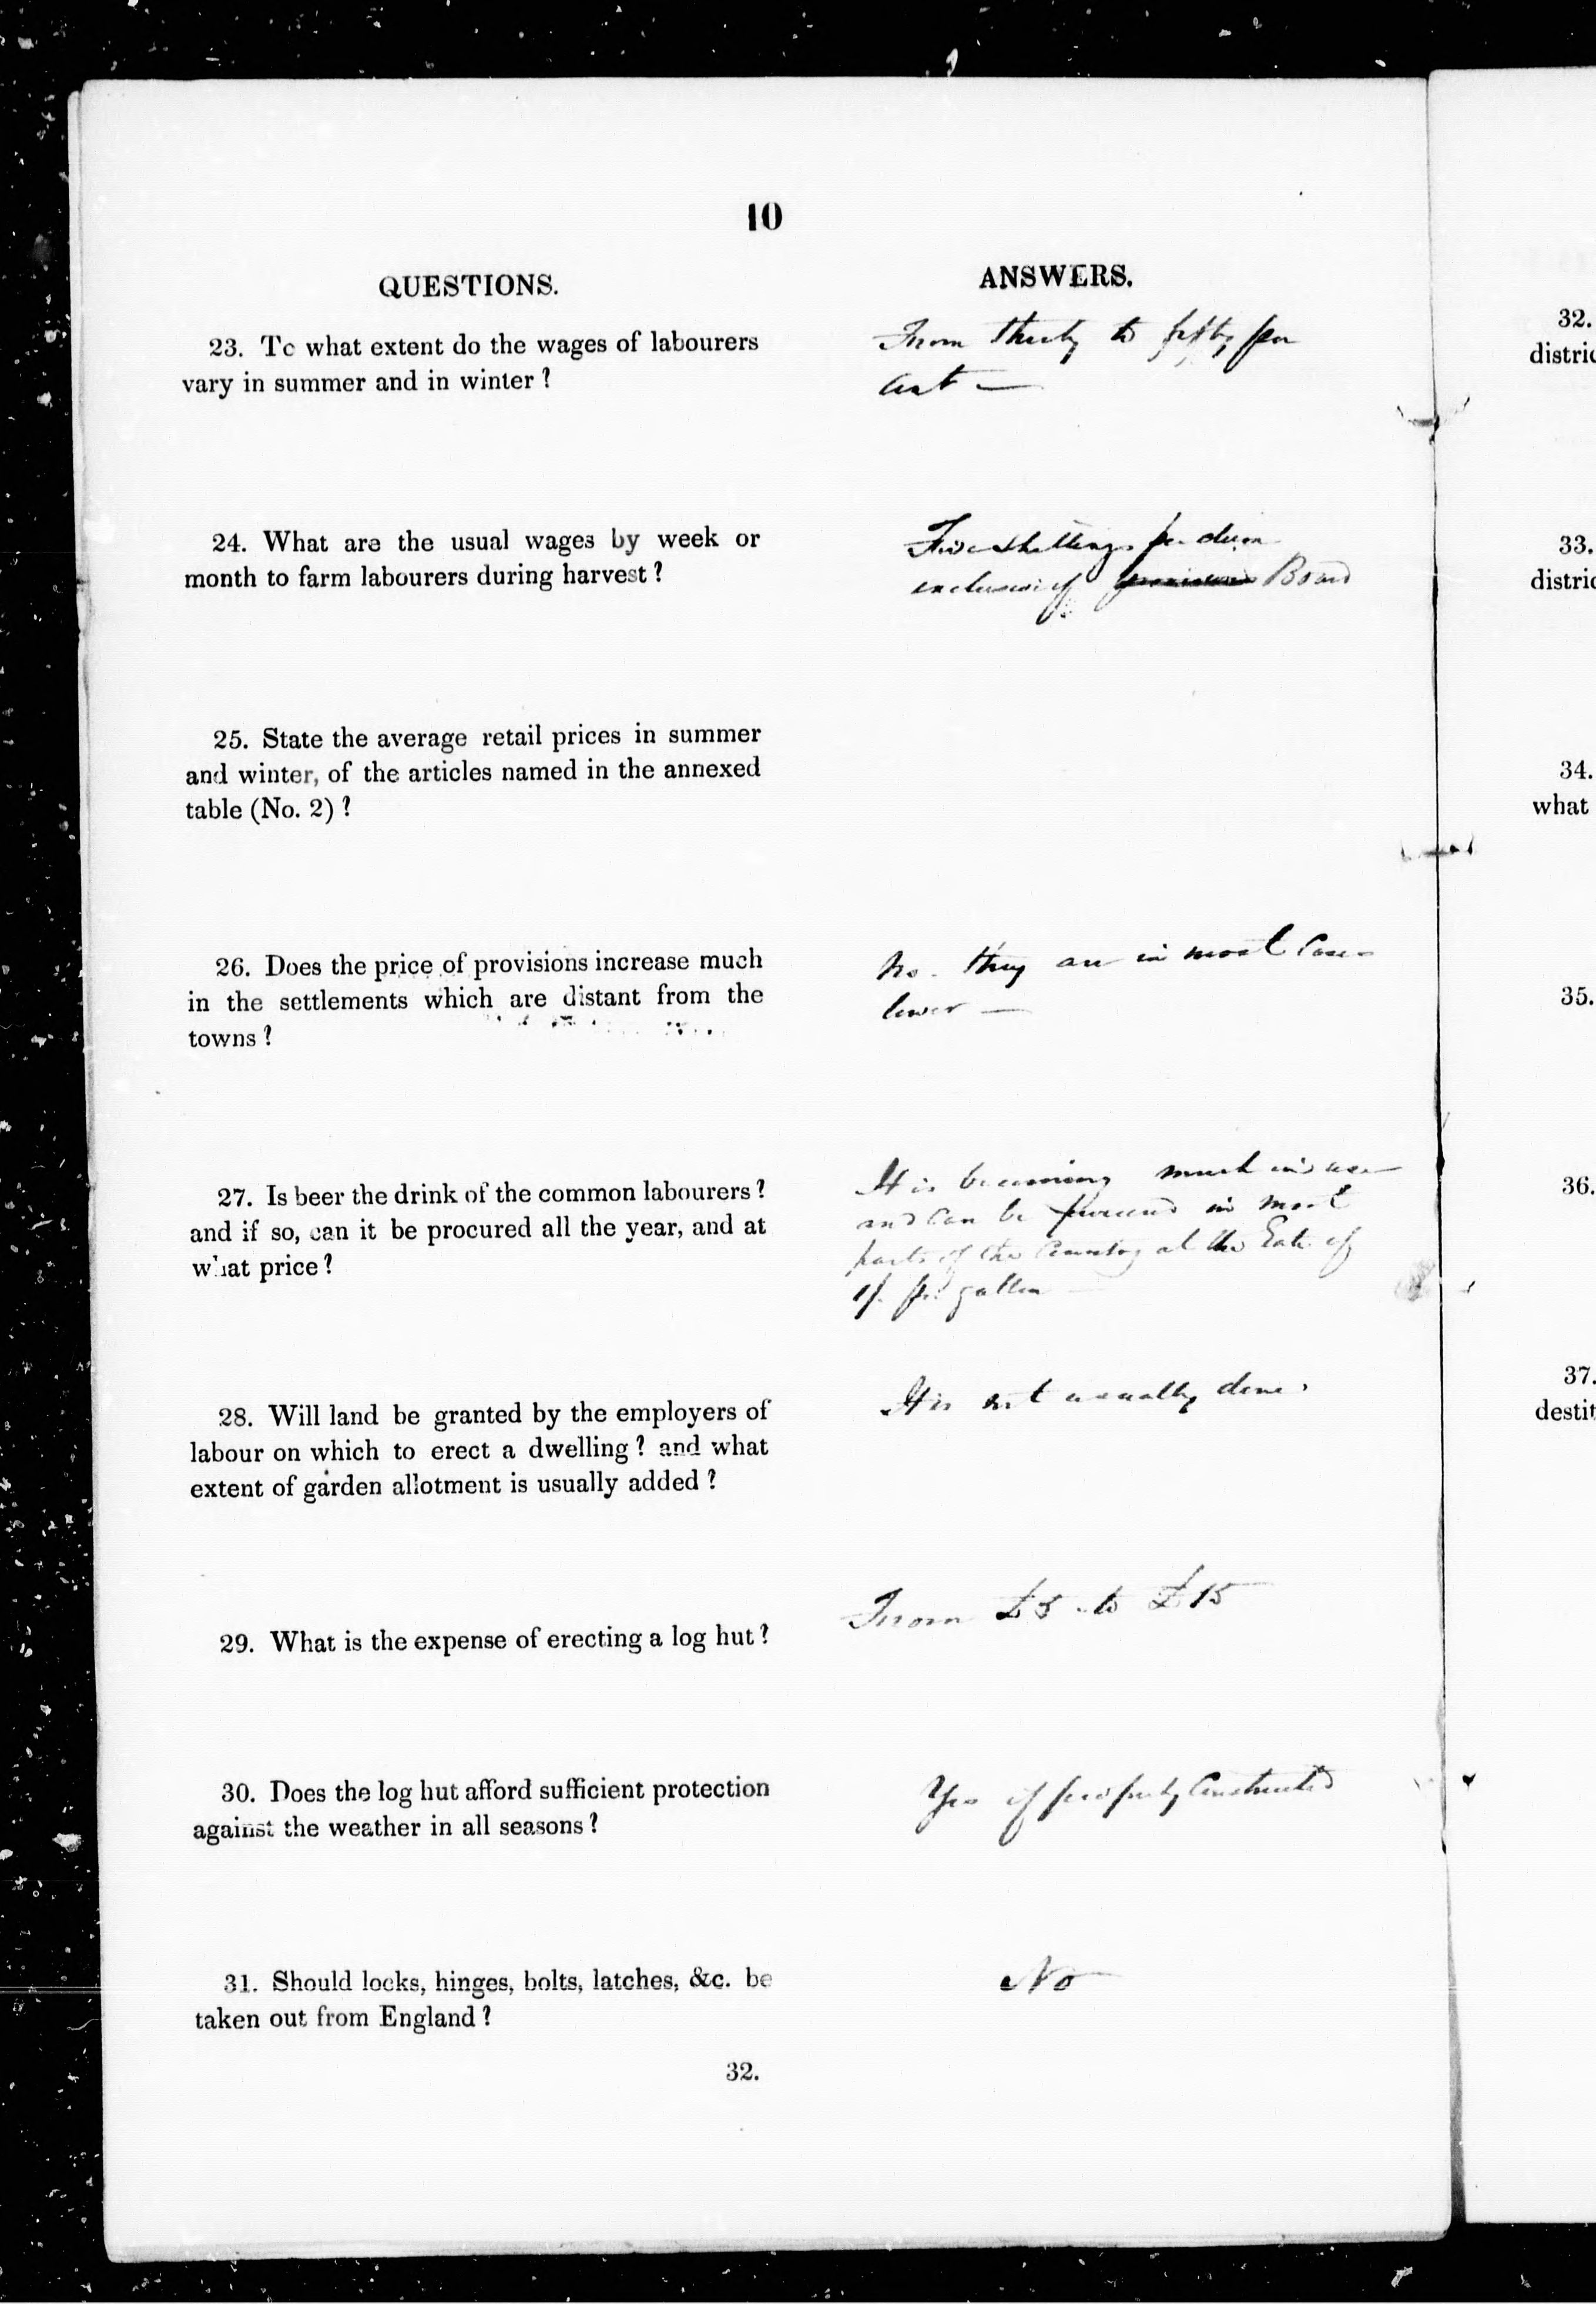 10
QUESTIONS.
ANSWERS.
23. To what extent do the wages of labourers
vary in summer and in winter?
From thirty to fifty per
Cent —
24. What are the usual wages by week or
month to farm labourers during harvest?
Five shillings per diem
exclusive of Board
25. State the average retail prices in summer
and winter, of the articles named in the annexed
table (No. 2)?
26. Does the price of provisions increase much
in the settlements which are distant from the
towns?
No. they are in most Cases
lower —
27. Is beer the drink of the common labourers?
and if so, can it be procured all the year, and at
what price?
It is becoming much in use
and Can be procured in most
parts of the Country at the Rate of
1/. per gallon
28. Will land be granted by the employers of
labour on which to erect a dwelling? and what
extent of garden allotment is usually added?
It is not usually done.
29. What is the expense of erecting a log hut?
From £5 to £15
30. Does the log hut afford sufficient protection
against the weather in all seasons?
Yes if properly Constructed
31. Should locks, hinges, bolts, latches, &c. be
taken out from England?
No
32.
32.
distric
33.
distric
34.
what
35.
36.
37.
destit